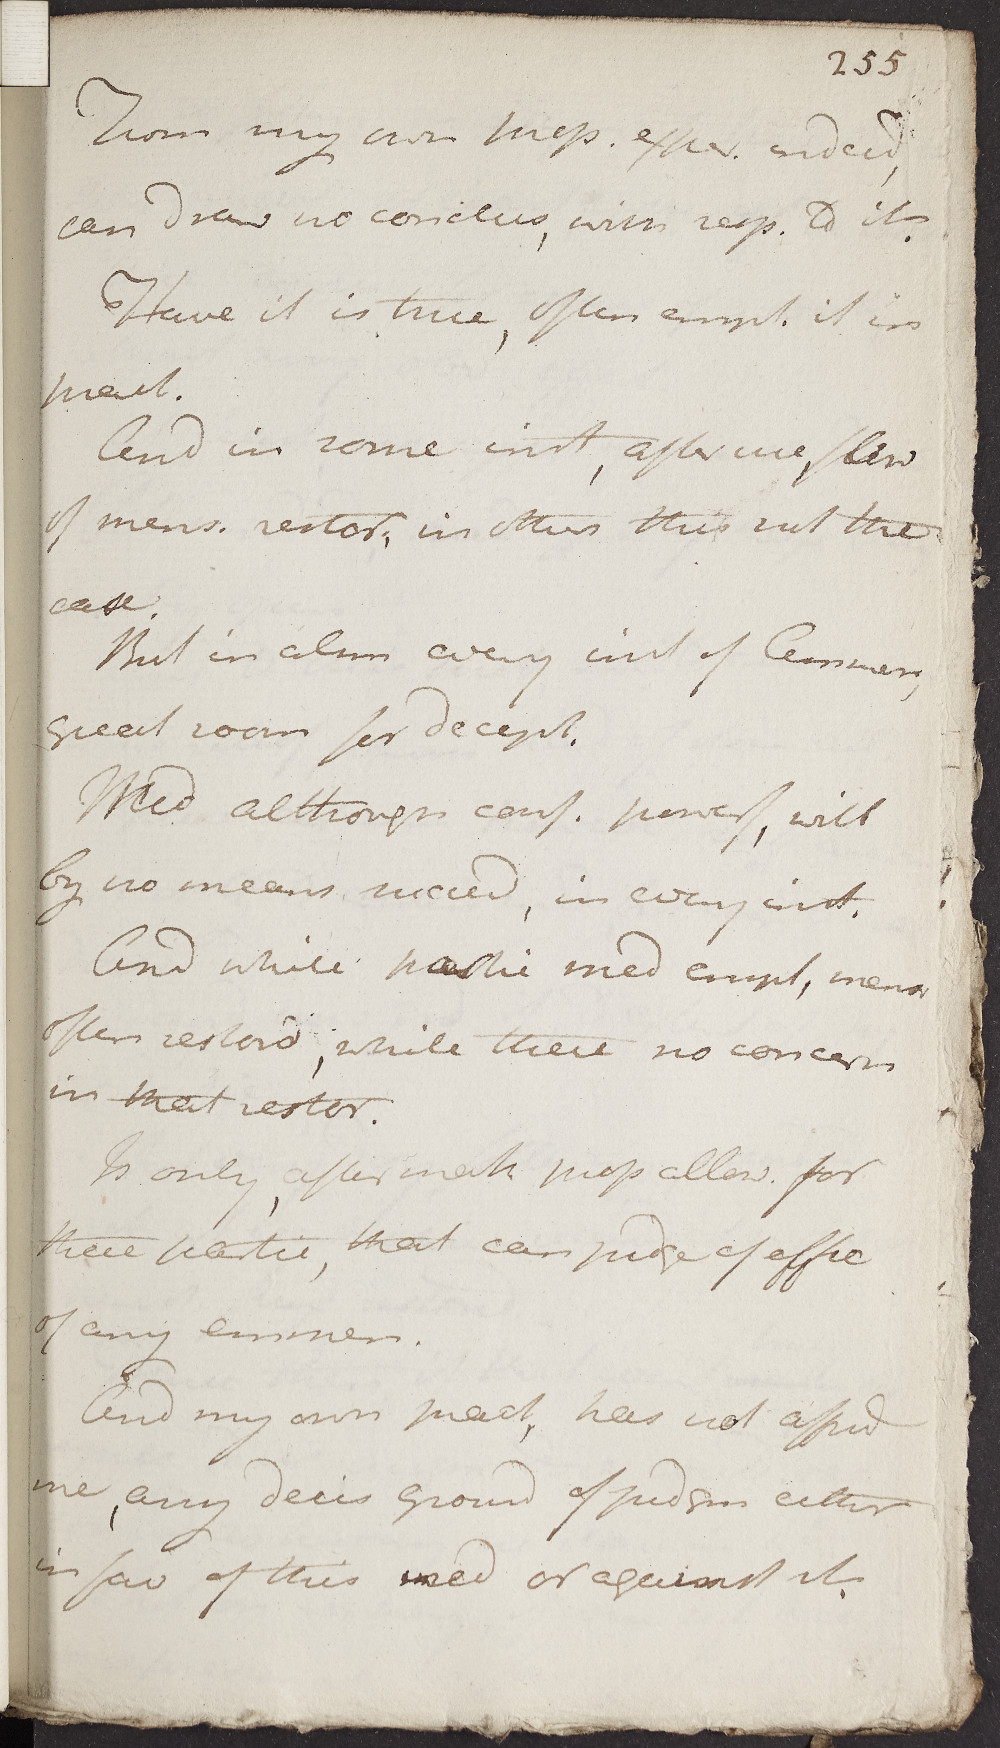 255
From my own prop. exper. indeed,
can draw no conclus, with resp. to it.
Have it is true, often empl. it in
pract.
And in some inst, after use, flow
of mens. restor, in others this not the
case.
But in alm every inst of Emmen,
great room for decept.
Med although conf. powerf, will
by no means succeed, in every inst.
And while partic med empl, mens
often restord, while there no concern
in that restor.
Is only, after mak prop allow. for
these partic, that can judge of effic
of any emmen.
And my own pract, has not affrd
me, any decis ground of judgm either
in fav of this med or against it.